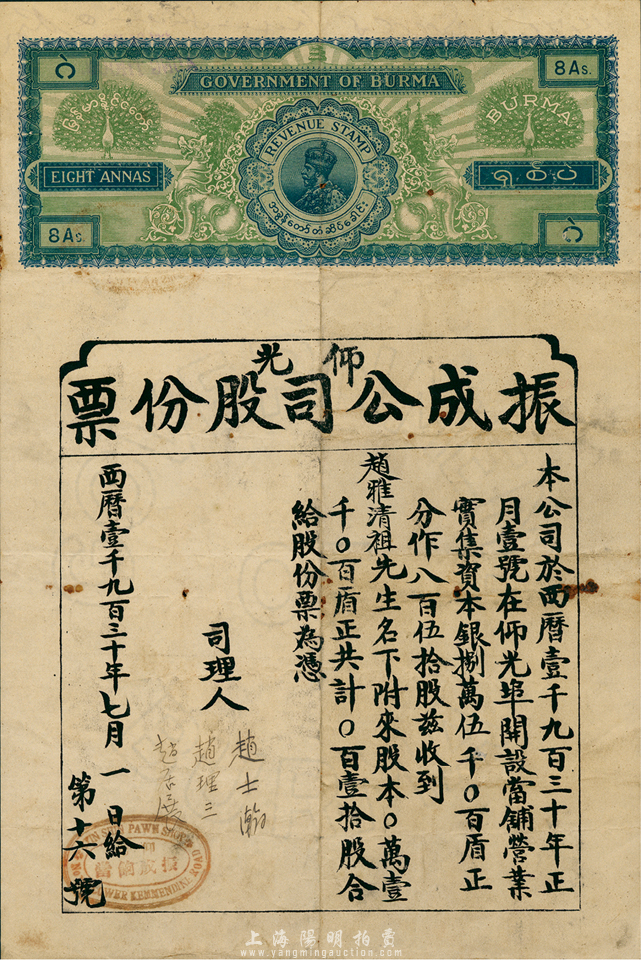 GOVERNMENT OF BURMA
8 AS.
BURMA
REVENUE STAMP
EIGHT ANNAS
ရှစ်ပဲ
8 AS.
仰光
振成公司股份票
本公司於西曆壹千九百三十年正
月壹號在仰光埠開設當舖營業
實集資本銀捌萬伍千0百盾正
分作八百伍拾股茲收到
趙雅清祖先生名下附來股本0萬壹
千0百盾正共計0百壹拾股合
給股份票為憑
司理人
趙士瀚
趙理三
西曆壹千九百三十年七月一日給
第十六號
振成倫當
上海陽明拍賣
www.yangmingauction.com